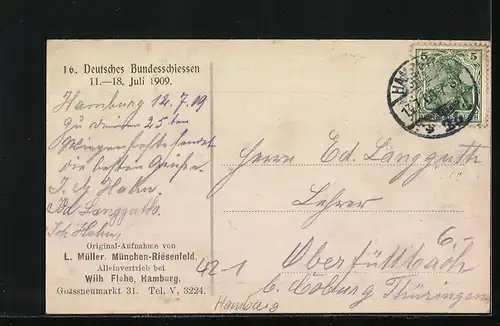 16. Deutsches Bundesschiessen
11.—18. Juli 1909.
Hamburg 12.7.09
Zu deinem 25ten
Wiegenfeste sendet
die besten Grüße.
J. G. Hahn.
Ed. Langguth.
Joh Hahn,
Original-Aufnahme von
L. Müller. München-Riesenfeld.
Alleinvertrieb bei
Wilh. Flohe, Hamburg.
Gänsemarkt 31. Tel. V, 3224.
5 5
Herrn Ed. Langguth
Lehrer
6.-
Oberfüllbach
b. Coburg Thüringen
42-1
Hamburg